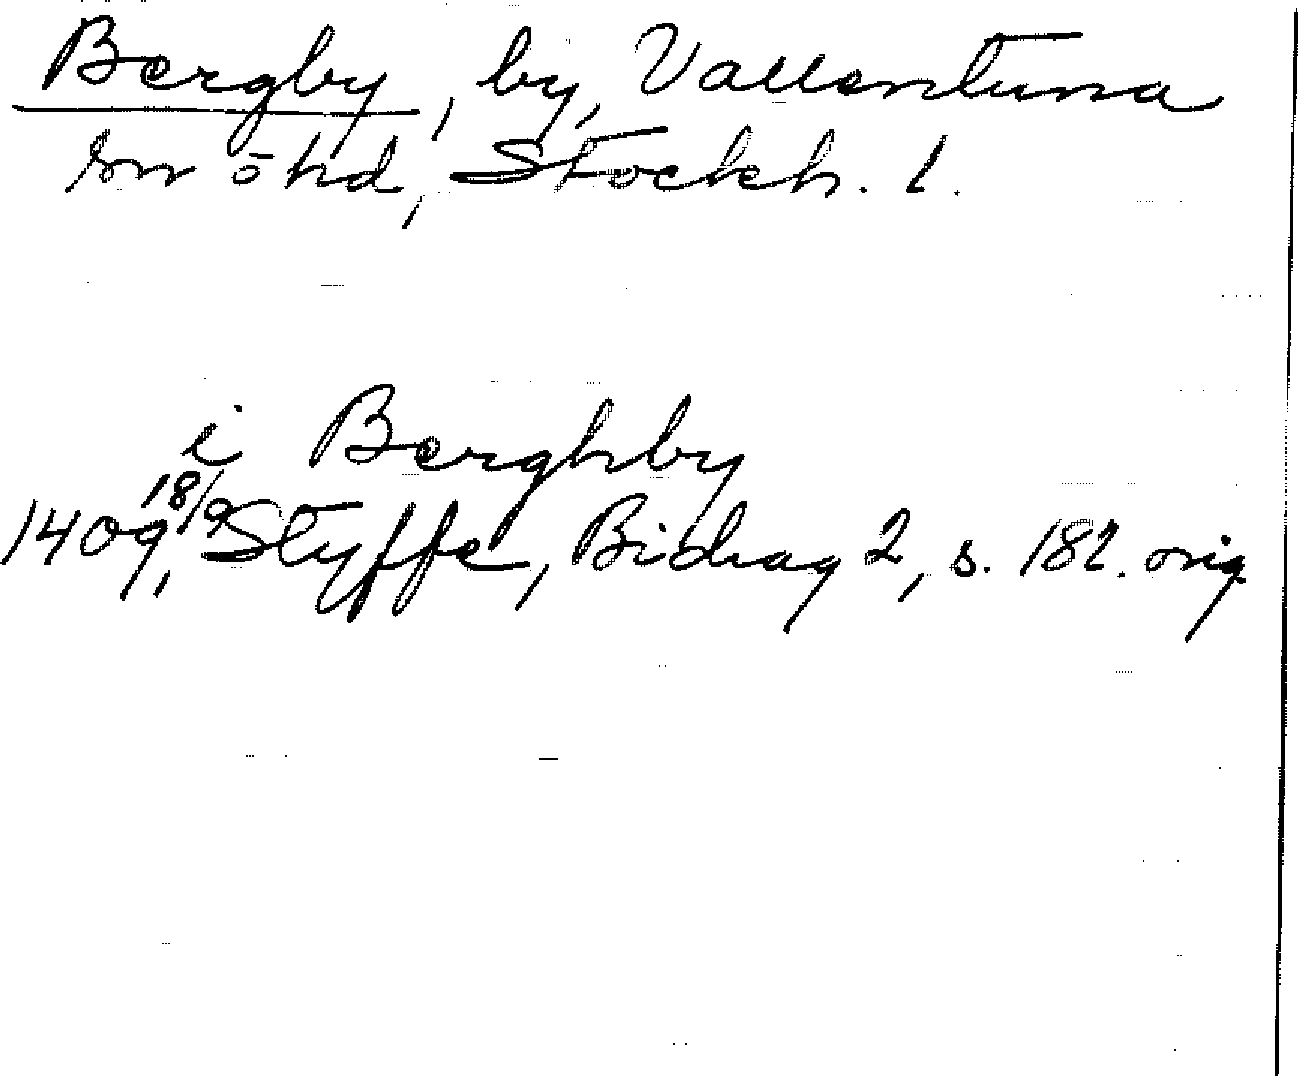 Bergby, by, Vallentuna
sn ōhd, Stockh. l.
i Berghby
1409 18/9, Styffe, Bidrag 2, s. 182. orig.